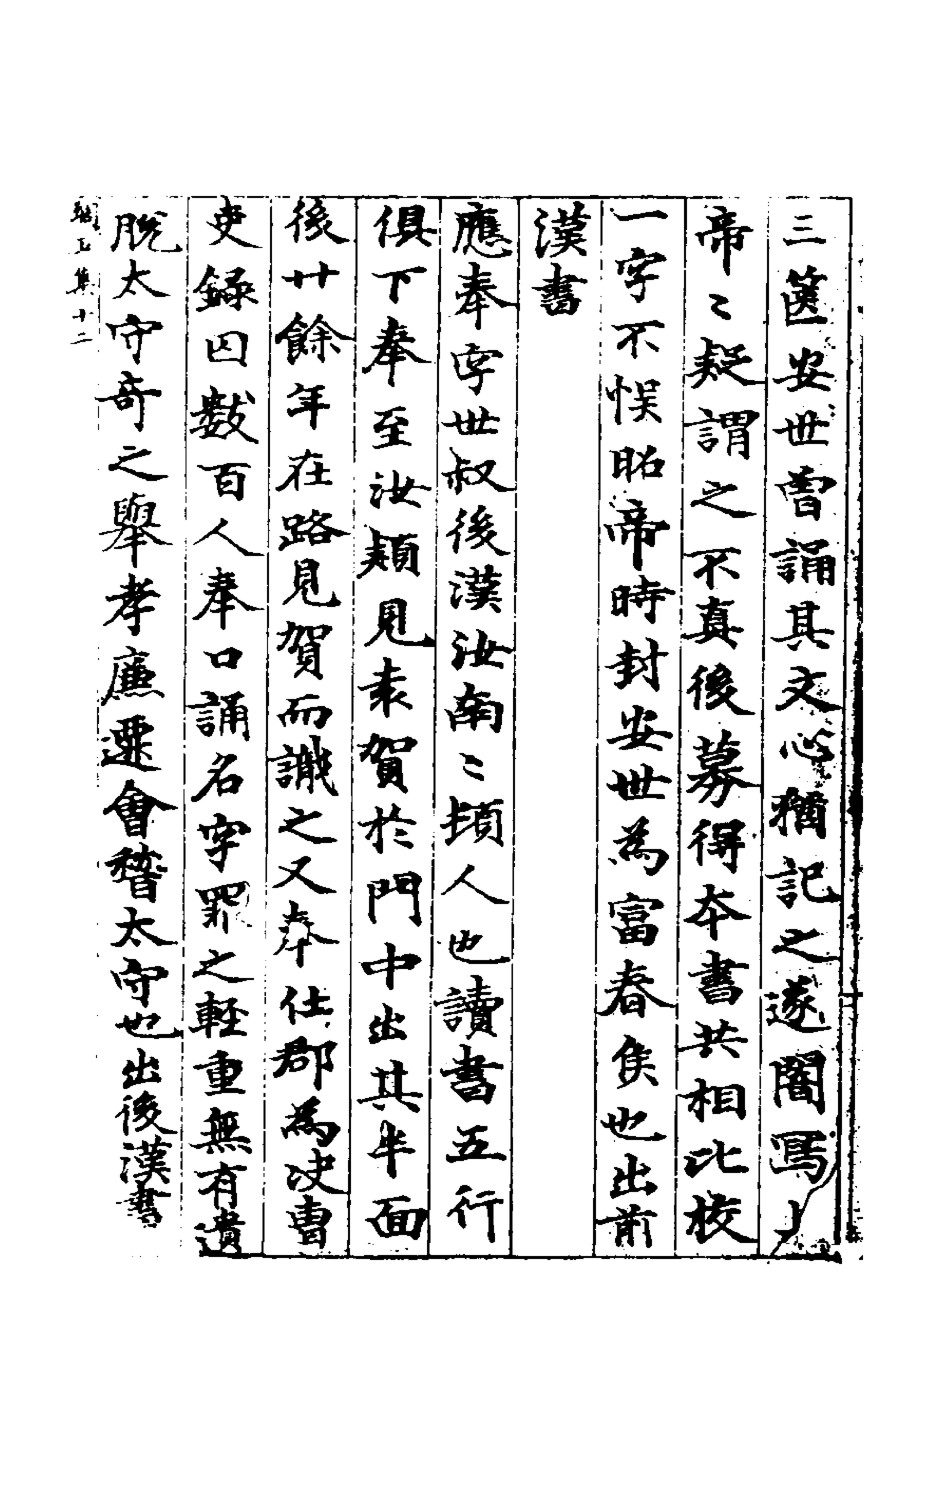 三篋安世曽誦其文心猶記之遂闇写上
帝〻疑謂之不真後募得本書共相比校
一字不悮昭帝時封安世為富春侯也出前
漢書
應奉字世叔後漢汝南〻頓人也讀書五行
俱下奉至汝穎見袁賀於門中出其半面
後廿餘年在路見賀而識之又奉仕郡為决曹
史録囚數百人奉口誦名字罪之輕重無有遺
脫太守奇之舉孝廉遷會稽太守也出後漢書
玉集十二